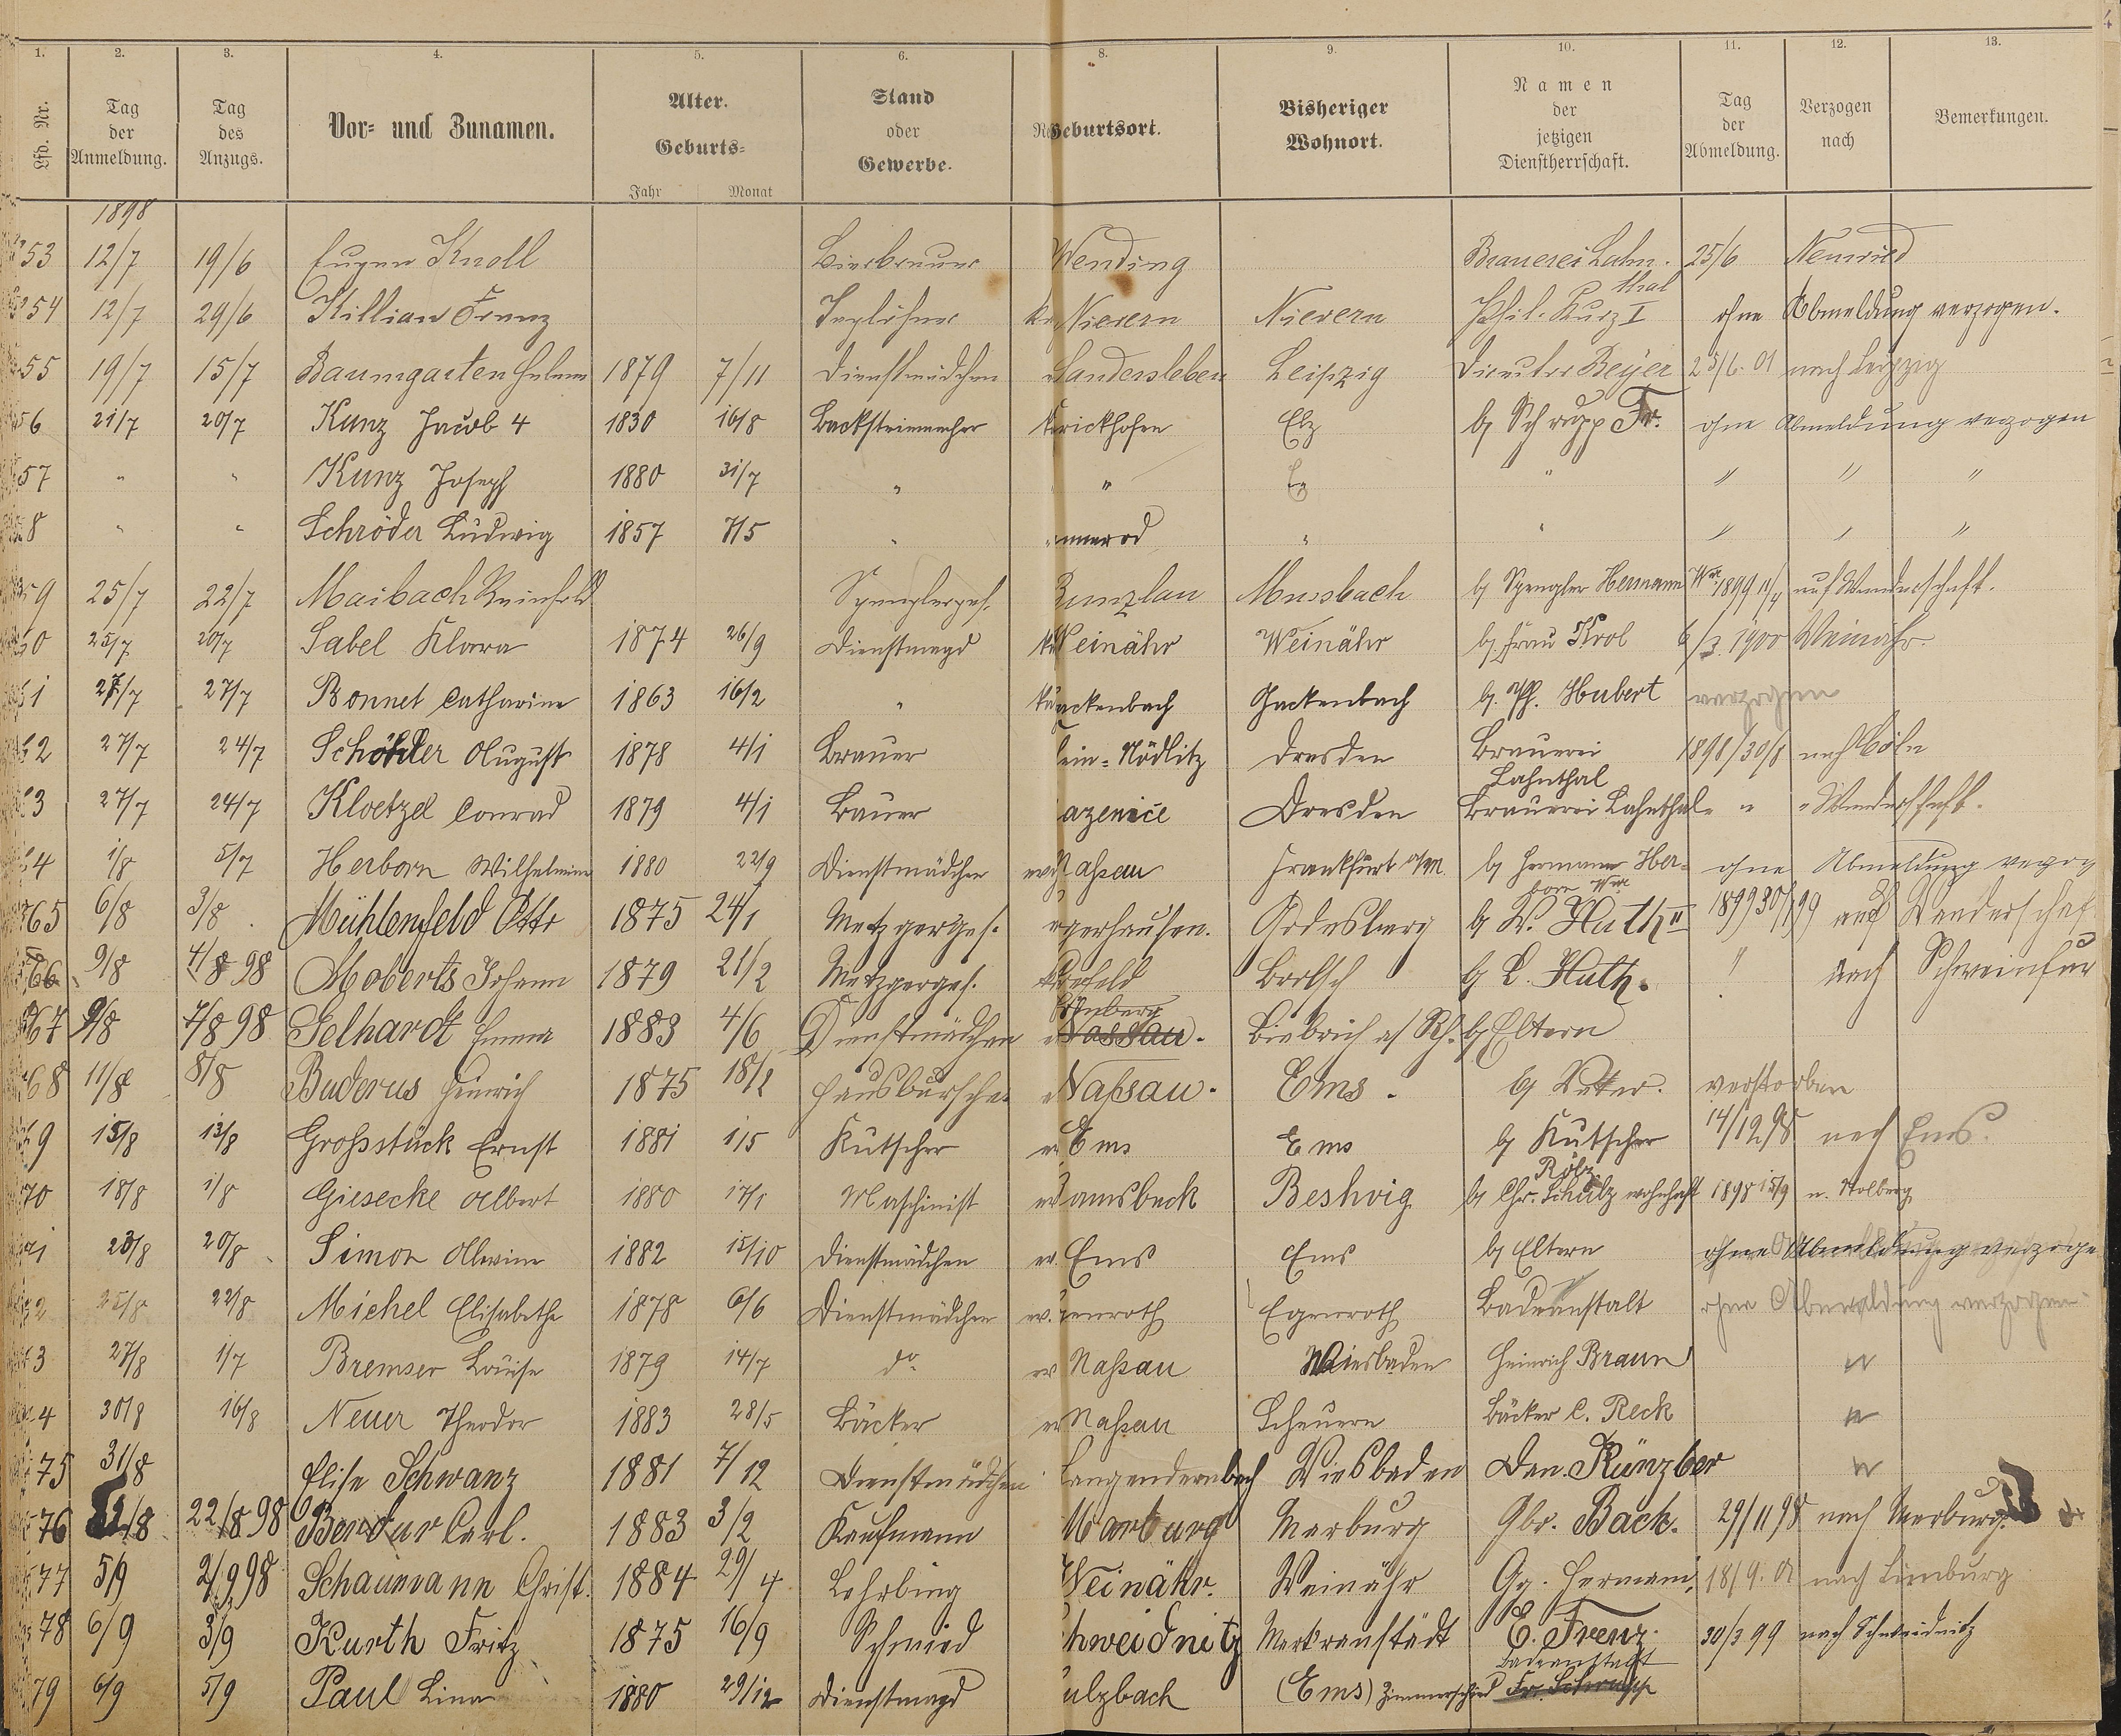 1. 2. 3. 4. 5. 6. 8. 9. 10. 11. 12. 13.
Lfd. Nr. Tag der Anmeldung. Tag des Anzugs. Vor- und Zunamen. Alter. Geburts- Jahr Monat Stand oder Gewerbe. Geburtsort. Bisheriger Wohnort. Namen der jetzigen Dienstherrschaft. Tag der Abmeldung. Verzogen nach Bemerkungen.
1898
53 12/7 19/6 Eugen Knoll Bierbrauer Wending Brauerei Lahnthal 25/6 Neuwied
54 12/7 29/6 Killian Franz Taglöhner Nievern Nievern Phil. Kurz I ohne Abmeldung verzogen.
55 19/7 15/7 Baumgarten Helene 1879 7/11 Dienstmädchen Sandersleben Leipzig Direktor Beyer 25/6. 01 nach Leipzig
56 21/7 20/7 Kunz Jacob 4 1830 16/8 Backsteinmacher Frickhofen Elz b/ Schrupp Fr. ohne Abmeldung verzogen
57 " " Kunz Joseph 1880 31/7 " " " " " " "
8 " " Schröder Ludwig 1857 7/5 " nnerod " " " " "
59 25/7 22/7 Maibach Reinhold Spenglerges. Bunzlau Mussbach b/ Spengler Hermann Ww. 1899 11/4 auf Wanderschaft.
60 25/7 20/7 Sabel Klara 1874 26/9 Dienstmagd Weinähr Weinähr b/ Frau Krol 6/3. 1900 Weinähr.
61 27/7 27/7 Bonnet Catharine 1863 16/2 " ackenbach Gackenbach b. Pf. Hubert verzogen
62 27/7 24/7 August 1878 4/1 Brauer lein-Nödlitz Dresden Brauerei Lahnthal 1898/30/8 nach Cöln
63 27/7 24/7 Kloetzel Conrad 1879 4/1 Bauer azenice Dresden Brauerei Lahnthal " " " Wanderschaft.
64 1/8 5/7 Herborn Wilhelmine 1880 22/9 Dienstmädchen Nassau Frankfurt a/M. b/ Hermann Herborn Ww. ohne Abmeldung verzog
65 6/8 3/8. Mühlenfeld Otto 1875 24/1 Metzgerges. gerhausen. Godesberg b/ W. Huth II auf Wanderschaf
66 9/8 4/8 98 Moberts Johann 1879 21/2 Metzgerges. Crefeld b/ L. Huth. " nach Schweinfur
67 9/8 7/8 98 Gelhardt Emma 1883 4/6 Dienstmädchen Nassau. Biebrich a/ Rh. b/ Eltern
68 11/8 8/8 Buderus Heinrich 1875 18/2 Hausbursche Nassau. Ems. b/ Vater. verstorben
69 15/8 13/8 Grossstück Ernst 1881 1/5 Kutscher Ems Ems b/ Kutscher Rölz 14/12 98 nach Ems.
70 18/8 1/8 Giesecke Albert 1880 17/1 Maschinist Ramsbeck Bestwig b/ Chr. Schulz wohnhaft 1898 15/9 n. Stolberg
71 23/8 20/8 Simon Alwine 1882 15/10 Dienstmädchen Ems Ems b/ Eltern ohne Abmeldung verzoge
72 25/8 22/8 Michel Elisabethe 1878 6/6 Dienstmädchen genroth Egenroth Badeanstalt ohne Abmeldung verzogen.
73 27/8 1/7 Bremser Louise 1879 14/7 do Nassau Wiesbaden Heinrich Braun "
74 30/8 16/8 Neuer Theodor 1883 28/5 Bäcker Nassau Scheuern Bäcker C. Reck "
75 31/8 Elise Schwanz 1881 7/12 Dienstmädchen Langendernbach Wiesbaden Dan. Künzler "
76 22/8 98 Carl. 1883 3/2 Kaufmann Marburg Marburg Gbr. Bach. 29/11 98 nach Marburg.
77 5/9 2/9 98 Schaumann Christ. 1884 29/4 Lehrling Weinähr. Weinähr Gg. Hermani, 18/9. 01 nach Limburg
78 6/9 3/9 Kurth Fritz 1875 16/9 Schmied chweidnitz Markranstädt E. Frenz. 30/3 99 nach Schweidnitz
79 6/9 5/9 Paul Lina 1880 29/12 Dienstmagd ulzbach (Ems) Zimmerschied Badeanstalt Fr. Schrupp